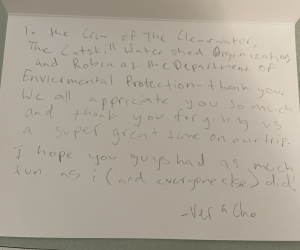 To the Crew of The Clearwater,
The Catskill Watershed Orginization,
and Robin at the Department of
Enviermental Protection - thank you.
We all appriciate you so much
and thank you for giving us
a super great time on our trip.
I hope you guys had as much
fun as i (and everyone else) did!
Cho